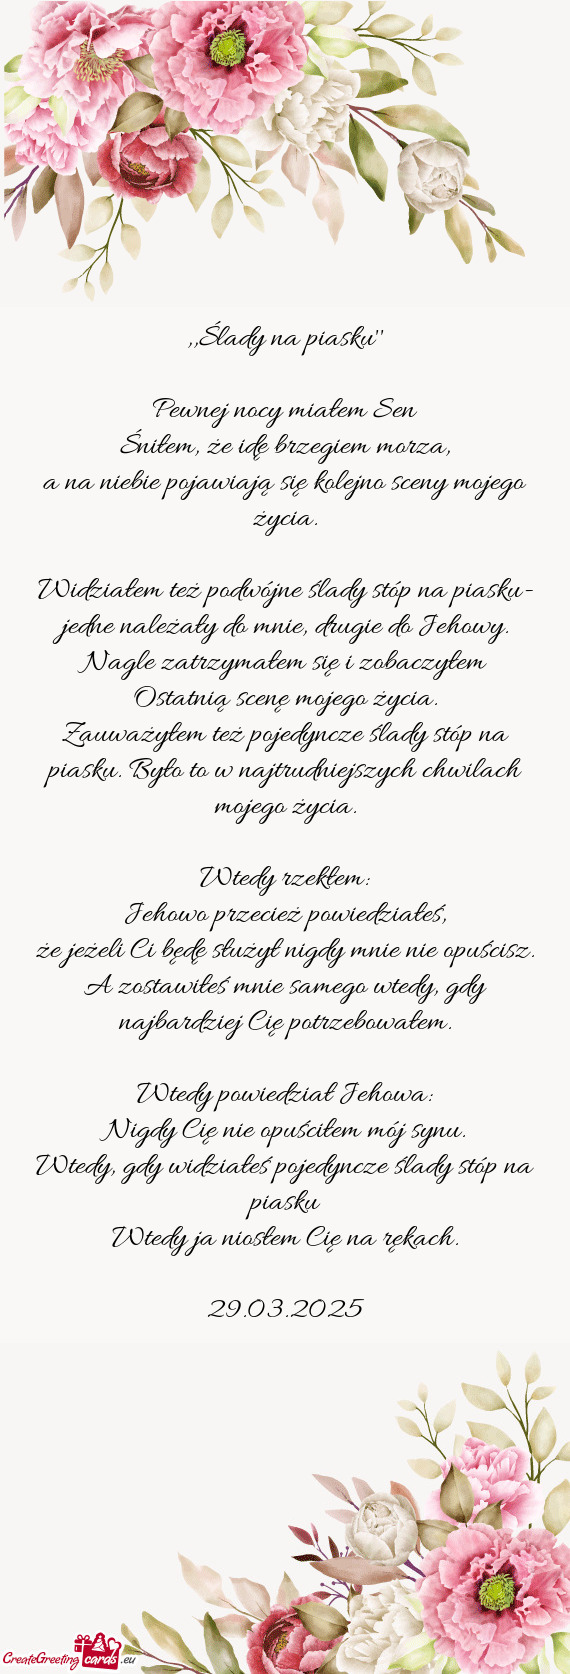 ,,Ślady na piasku"
Pewnej nocy miałem Sen
Śniłem, że idę brzegiem morza,
a na niebie pojawiają się kolejno sceny mojego
życia.
Widziałem też podwójne ślady stóp na piasku-
jedne należały do mnie, drugie do Jehowy.
Nagle zatrzymałem się i zobaczyłem
Ostatnią scenę mojego życia.
Zauważyłem też pojedyncze ślady stóp na
piasku. Było to w najtrudniejszych chwilach
mojego życia.
Wtedy rzekłem:
Jehowo przecież powiedziałeś,
że jeżeli Ci będę służył nigdy mnie nie opuścisz.
A zostawiłeś mnie samego wtedy, gdy
najbardziej Cię potrzebowałem.
Wtedy powiedział Jehowa:
Nigdy Cię nie opuściłem mój synu.
Wtedy, gdy widziałeś pojedyncze ślady stóp na
piasku
Wtedy ja niosłem Cię na rękach.
29.03.2025
CreateGreeting cards .eu